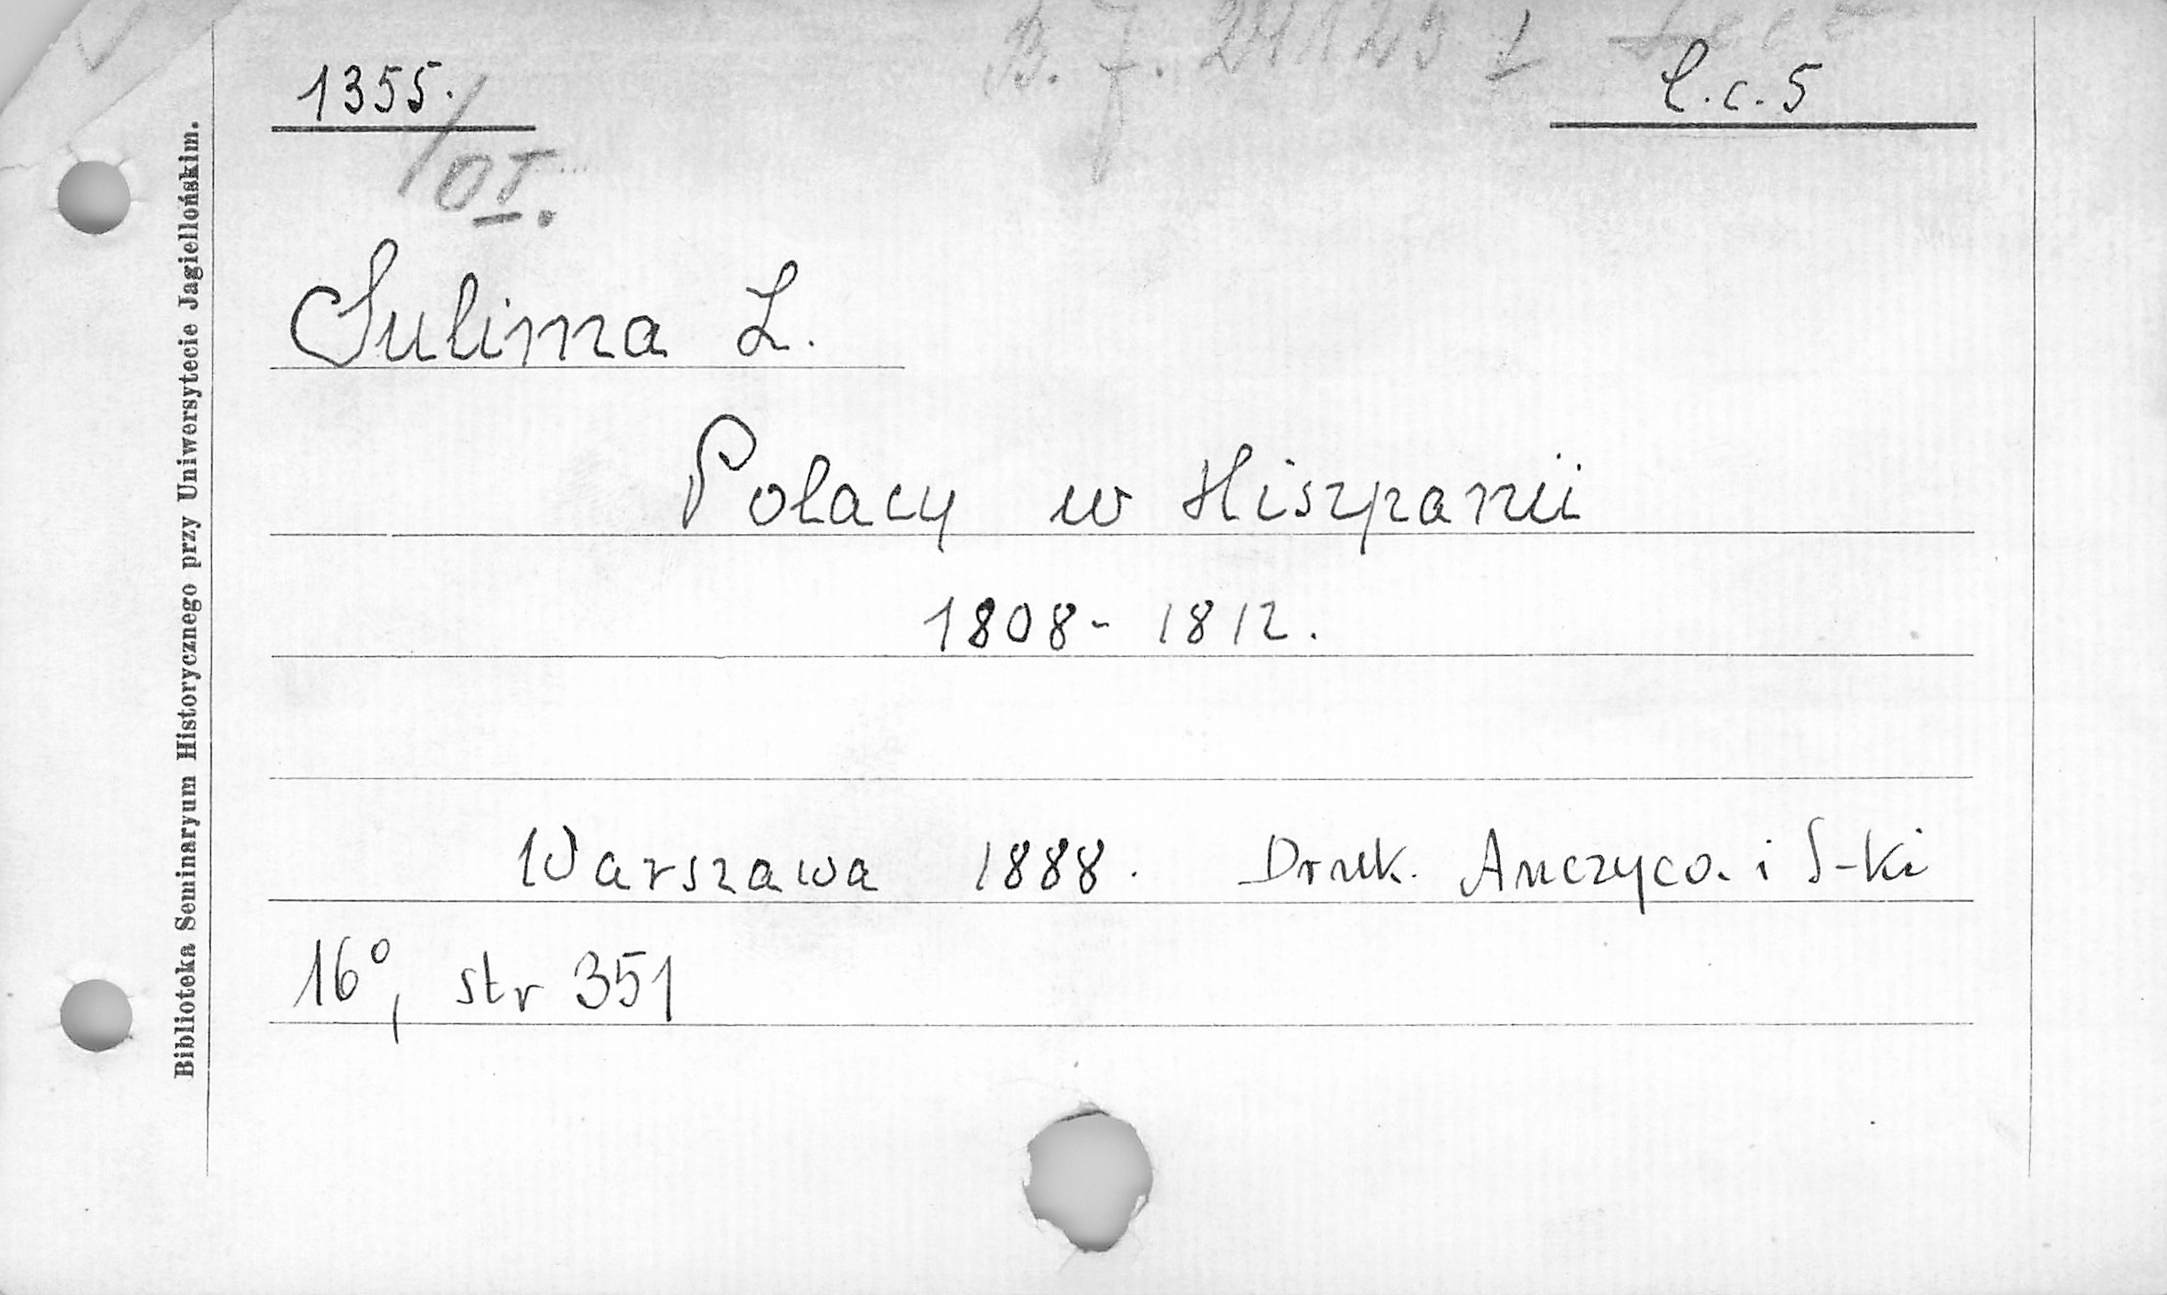 B. J. 241123 I
1355.
l. c. 5
/OI.
Sulima Z.
Polacy w Hiszpanii
1808 - 1812.
Warszawa 1888. Druk. Anczyca i S-ki
16°, str 351
Biblioteka Seminaryum Historycznego przy Uniwersytecie Jagiellońskim.